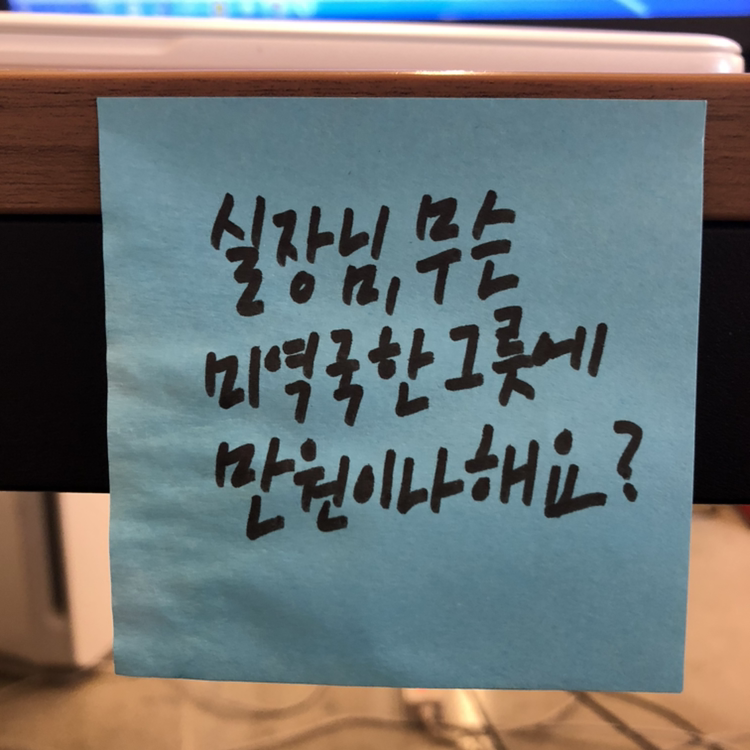 실장님, 무슨
미역국 한 그릇에
만원이나 해요?